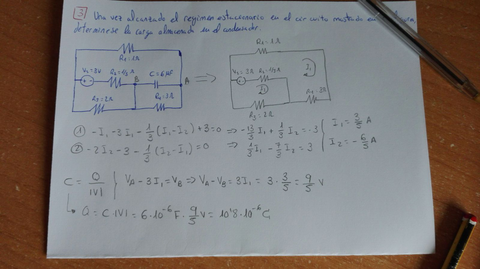 3 Una vez alcanzado el régimen estacionario en el circuito mostrado en la
determínese la carga almacenada en el condensador.
R₁=1Ω
V₁=3V R₂=1/3Ω B C=6μF A
R₃=2Ω R₄=3Ω
⟹
R₁=1Ω
V₁=3V R₂=1/3Ω I₁
I₂ R₄=3Ω
R₃=2Ω
① -I₁-3I₁-1/3(I₁-I₂)+3=0 ⟹ -13/3 I₁+1/3 I₂=-3 I₁=3/5 A
② -2I₂-3-1/3(I₂-I₁)=0 ⟹ 1/3 I₁-7/3 I₂=3 I₂=-6/5 A
C=Q/|V| } V_A-3I₁=V_B ⟹ V_A-V_B=3I₁=3·3/5=9/5 V
Q=C·|V|=6·10⁻⁶F·9/5V=10'8·10⁻⁶C